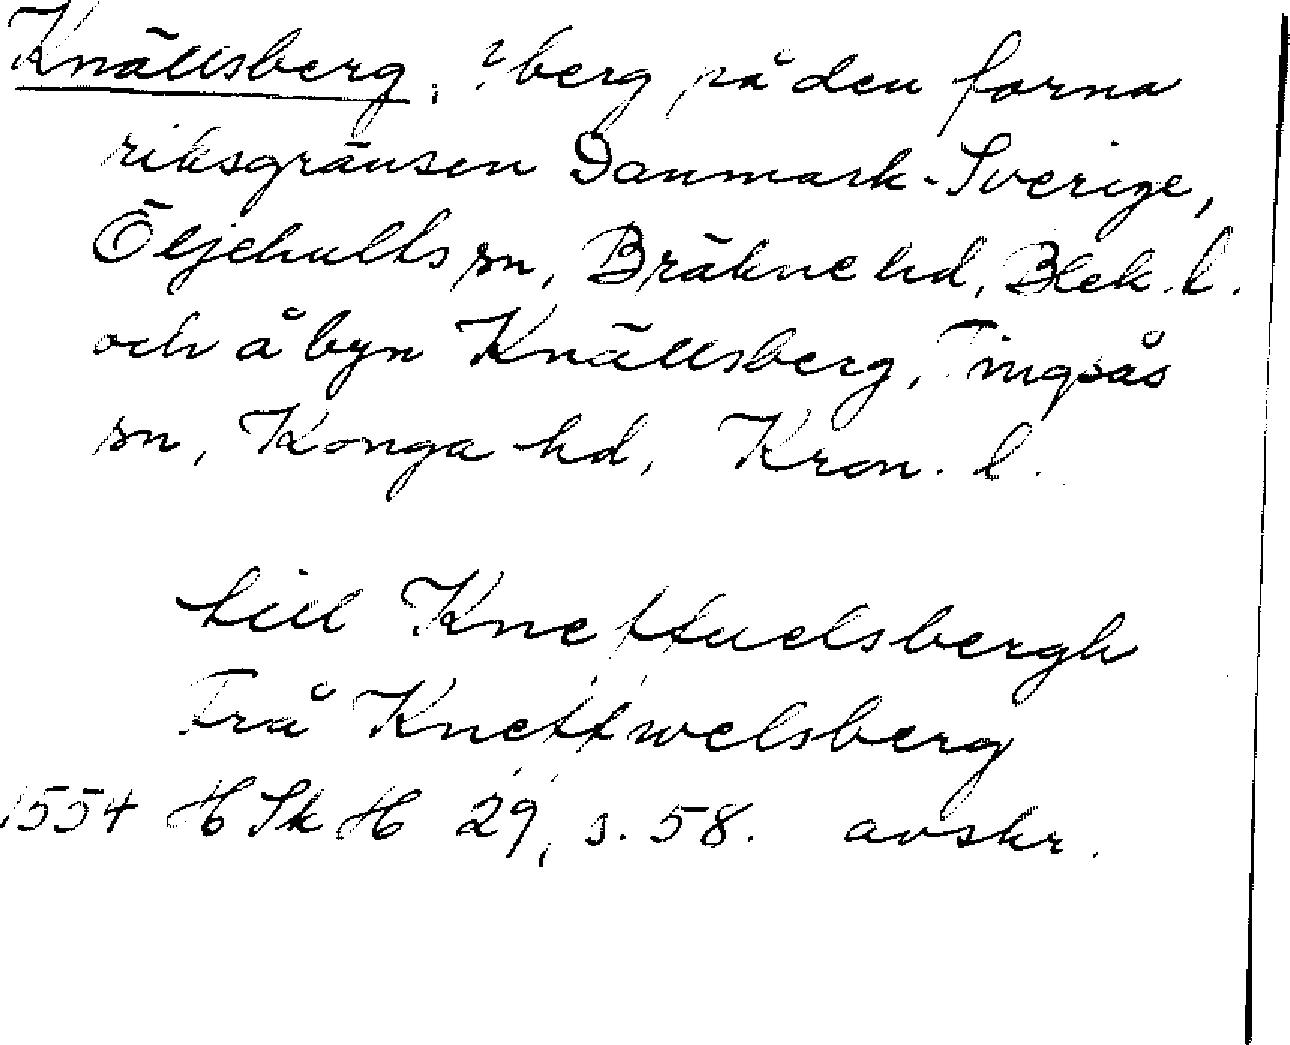 Knällsberg, ? berg på den forna
riksgränsen Danmark-Sverige,
Öljehults sn, Bräkne hd, Blek. l.
och å byn Knällsberg, Tingsås
sn, Konga hd, Kron. l.
till Knettuelsbergh
Frå Knettwelsberg
1554 HSkH 29, s. 58. avskr.